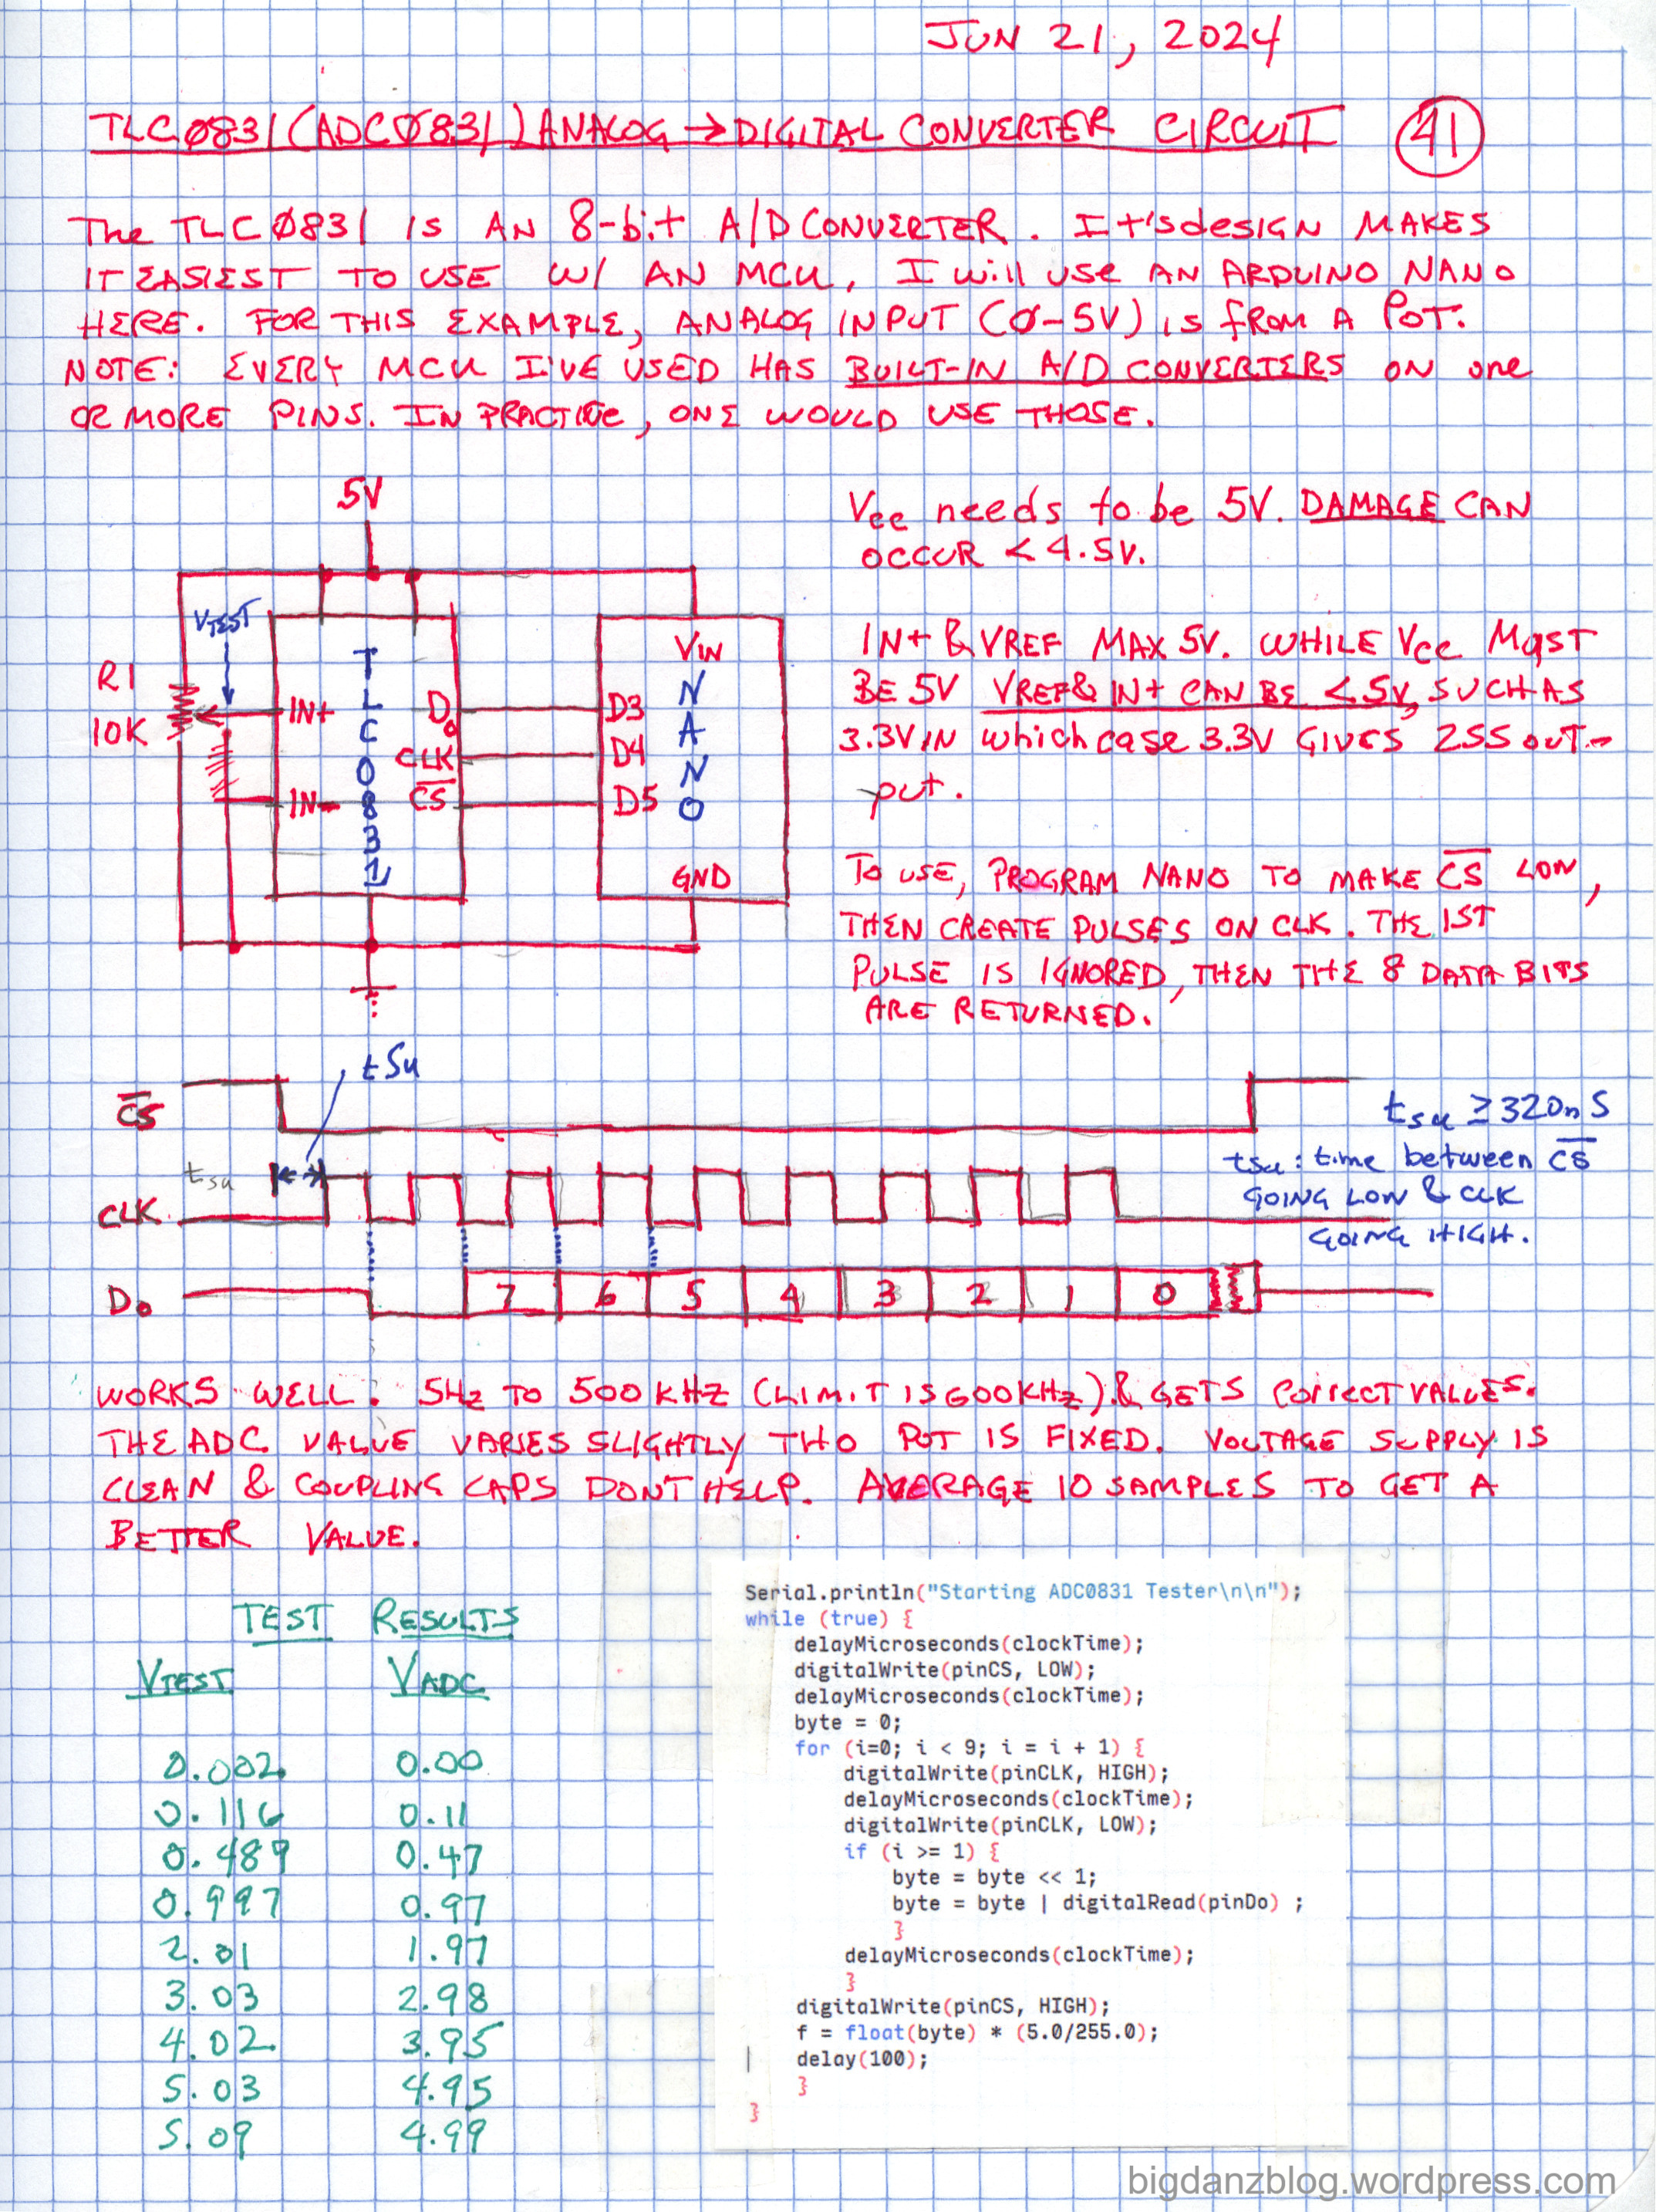 JUN 21, 2024
TLC0831 (ADC0831) ANALOG → DIGITAL CONVERTER CIRCUIT 41
The TLC0831 IS AN 8-bit A/D CONVERTER. It's design MAKES
IT EASIEST TO USE W/ AN MCU, I will use AN ARDUINO NANO
HERE. FOR THIS EXAMPLE, ANALOG INPUT (0-5V) is from A Pot.
NOTE: EVERY MCU I'VE USED HAS BUILT-IN A/D CONVERTERS ON one
OR MORE PINS. IN PRACTICE, ONE WOULD USE THOSE.
5V
Vcc needs to be 5V. DAMAGE CAN
OCCUR < 4.5V.
VTEST
R1
10K
IN+
IN-
TLC0831
Do
CLK
C̅S̅
D3
D4
D5
VIN
NANO
GND
IN+ & VREF MAX 5V. WHILE Vcc MUST
BE 5V VREF & IN+ CAN BE <5V, SUCH AS
3.3V IN which case 3.3V GIVES 255 out-
put.
To use, PROGRAM NANO TO MAKE C̅S̅ LOW,
THEN CREATE PULSES ON CLK. THE 1ST
PULSE IS IGNORED, THEN THE 8 DATA BITS
ARE RETURNED.
tSu
C̅S̅
tsu
CLK
Do
7 6 5 4 3 2 1 0
tsu ≥ 320nS
tsu: time between C̅S̅
GOING LOW & CLK
GOING HIGH.
WORKS WELL. 5Hz TO 500 kHz (LIMIT IS 600KHz) & GETS correct VALUES.
THE ADC VALUE VARIES SLIGHTLY THO POT IS FIXED. VOLTAGE SUPPLY IS
CLEAN & COUPLING CAPS DONT HELP. AVERAGE 10 SAMPLES TO GET A
BETTER VALUE.
TEST RESULTS
VTEST VADC
0.002 0.00
0.116 0.11
0.489 0.47
0.997 0.97
2.01 1.97
3.03 2.98
4.02 3.95
5.03 4.95
5.09 4.99
Serial.println("Starting ADC0831 Tester\n\n");
while (true) {
delayMicroseconds(clockTime);
digitalWrite(pinCS, LOW);
delayMicroseconds(clockTime);
byte = 0;
for (i=0; i < 9; i = i + 1) {
digitalWrite(pinCLK, HIGH);
delayMicroseconds(clockTime);
digitalWrite(pinCLK, LOW);
if (i >= 1) {
byte = byte << 1;
byte = byte | digitalRead(pinDo) ;
}
delayMicroseconds(clockTime);
}
digitalWrite(pinCS, HIGH);
f = float(byte) * (5.0/255.0);
delay(100);
}
}
bigdanzblog.wordpress.com